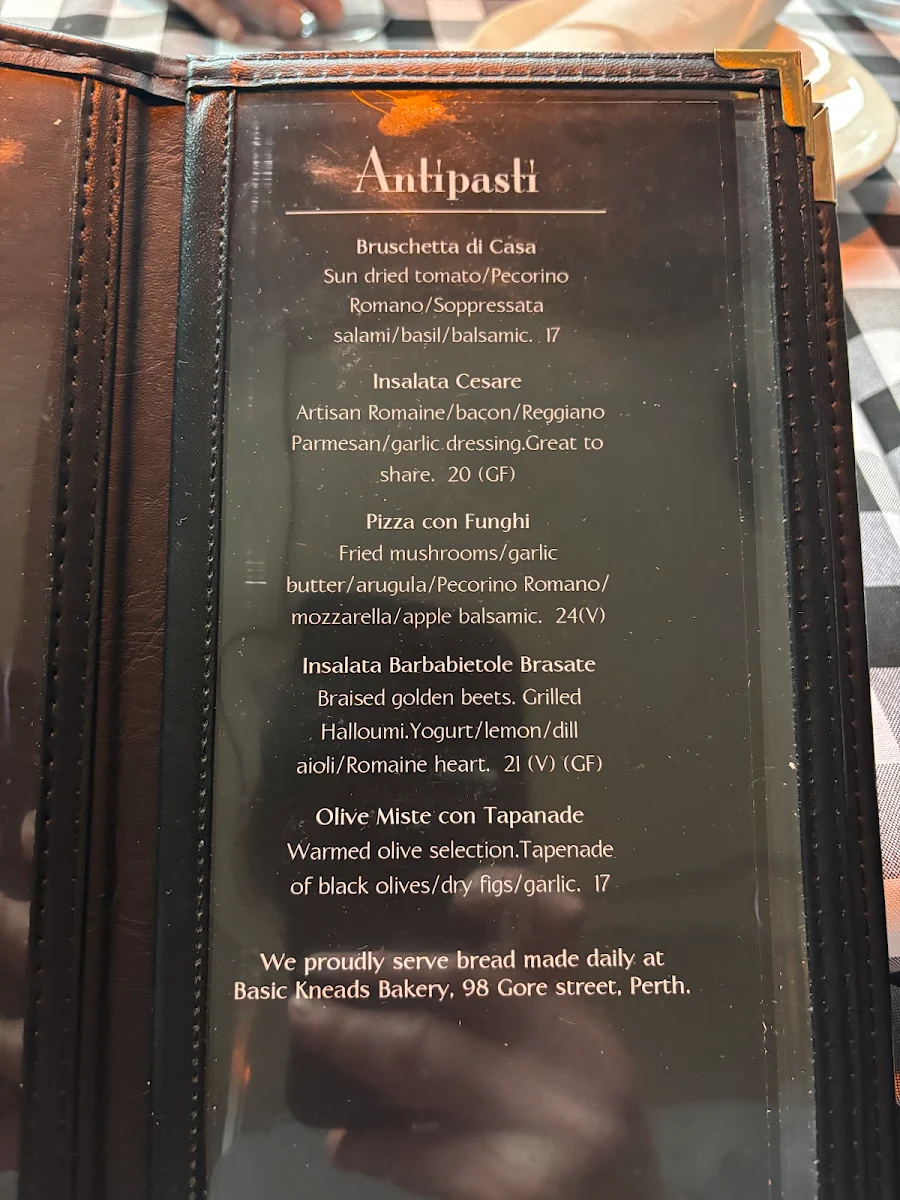 Antipasti
Bruschetta di Casa
Sun dried tomato/Pecorino
Romano/Soppressata
salami/basil/balsamic. 17
Insalata Cesare
Artisan Romaine/bacon/Reggiano
Parmesan/garlic dressing.Great to
share. 20 (GF)
Pizza con Funghi
Fried mushrooms/garlic
butter/arugula/Pecorino Romano/
mozzarella/apple balsamic. 24(V)
Insalata Barbabietole Brasate
Braised golden beets. Grilled
Halloumi.Yogurt/lemon/dill
aioli/Romaine heart. 21 (V) (GF)
Olive Miste con Tapanade
Warmed olive selection.Tapenade
of black olives/dry figs/garlic. 17
We proudly serve bread made daily at
Basic Kneads Bakery, 98 Gore street, Perth.